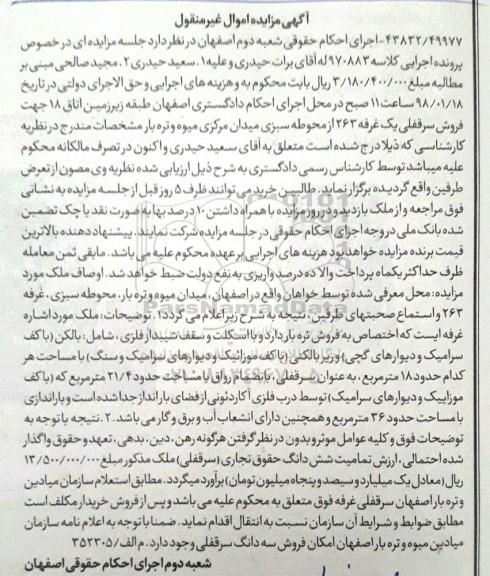 آگهی مزایده اموال غیرمنقول
۴۳۸۳۲/۴۹۹۷۷- اجرای احکام حقوقی شعبه دوم اصفهان در نظر دارد جلسه مزایده ای در خصوص
پرونده اجرایی کلاسه ۹۷۰۸۸۳ له آقای برات حیدری و علیه ۱. سعید حیدری ۲. مجید صالحی مبنی بر
مطالبه مبلغ ۳/۱۸۰/۴۰۰/۰۰۰ ریال بابت محکوم به و هزینه های اجرایی و حق الاجرای دولتی در تاریخ
۹۸/۰۱/۱۸ ساعت ۱۱ صبح در محل اجرای احکام دادگستری اصفهان طبقه زیرزمین اتاق ۱۸ جهت
فروش سرقفلی یک غرفه ۲۶۳ از محوطه سبزی میدان مرکزی میوه و تره بار مشخصات مندرج در نظریه
کارشناسی که ذیلا درج شده است متعلق به آقای سعید حیدری و اکنون در تصرف مالکانه محکوم
علیه میباشد توسط کارشناس رسمی دادگستری به شرح ذیل ارزیابی شده نظریه وی مصون از تعرض
طرفین واقع گردیده برگزار نماید. طالبین خرید می توانند ظرف ۵ روز قبل از جلسه مزایده به نشانی
فوق مراجعه و از ملک بازدید و در روز مزایده با همراه داشتن ۱۰ درصد بها به صورت نقد یا چک تضمین
شده بانک ملی در وجه اجرای احکام حقوقی در جلسه مزایده شرکت نمایند. پیشنهاد دهنده بالاترین
قیمت برنده مزایده خواهد بود هزینه های اجرایی بر عهده محکوم علیه می باشد. مابقی ثمن معامله
ظرف حداکثر یکماه پرداخت والا ده درصد واریزی به نفع دولت ضبط خواهد شد. اوصاف ملک مورد
مزایده: محل معرفی شده توسط خواهان واقع در اصفهان، میدان میوه و تره بار، محوطه سبزی، غرفه
۲۶۳ و استماع صحبتهای طرفین، نتیجه به شرح زیر اعلام می گردد: ۱. توضیحات: ملک مورد اشاره
غرفه ایست که اختصاص به فروش تره بار دارد و با اسکلت و سقف شیبدار فلزی، شامل: بالکن (با کف
سرامیک و دیوارهای گچی) و زیر بالکنی (با کف موزائیک و دیوارهای سرامیک و سنگ) با مساحت هر
کدام حدود ۱۸ مترمربع، به عنوان سرقفلی، بانضمام رواق با مساحت حدود ۲۱/۴ مترمربع که (با کف
موزاییک و دیوارهای سرامیک) توسط درب فلزی آکاردئونی از فضای بارانداز جدا شده است و باراندازی
با مساحت حدود ۳۶ مترمربع و همچنین دارای انشعاب آب و برق و گاز می باشد. ۲. نتیجه با توجه به
توضیحات فوق و کلیه عوامل موثر و بدون در نظر گرفتن هرگونه رهن، دین، بدهی، تعهد و حقوق واگذار
شده احتمالی، ارزش تمامیت شش دانگ حقوق تجاری (سرقفلی) ملک مذکور مبلغ ۱۳/۵۰۰/۰۰۰/۰۰۰
ریال (معادل یک میلیارد و سیصد و پنجاه میلیون تومان) برآورد میگردد. مطابق استعلام سازمان میادین
و تره بار اصفهان سرقفلی غرفه فوق متعلق به محکوم علیه می باشد و پس از فروش خریدار مکلف است
مطابق ضوابط و شرایط آن سازمان نسبت به انتقال اقدام نماید. ضمنا با توجه به اعلام نامه سازمان
میادین میوه و تره بار اصفهان امکان فروش سه دانگ سرقفلی وجود دارد. م الف/۳۵۲۳۰۵
شعبه دوم اجرای احکام حقوقی اصفهان